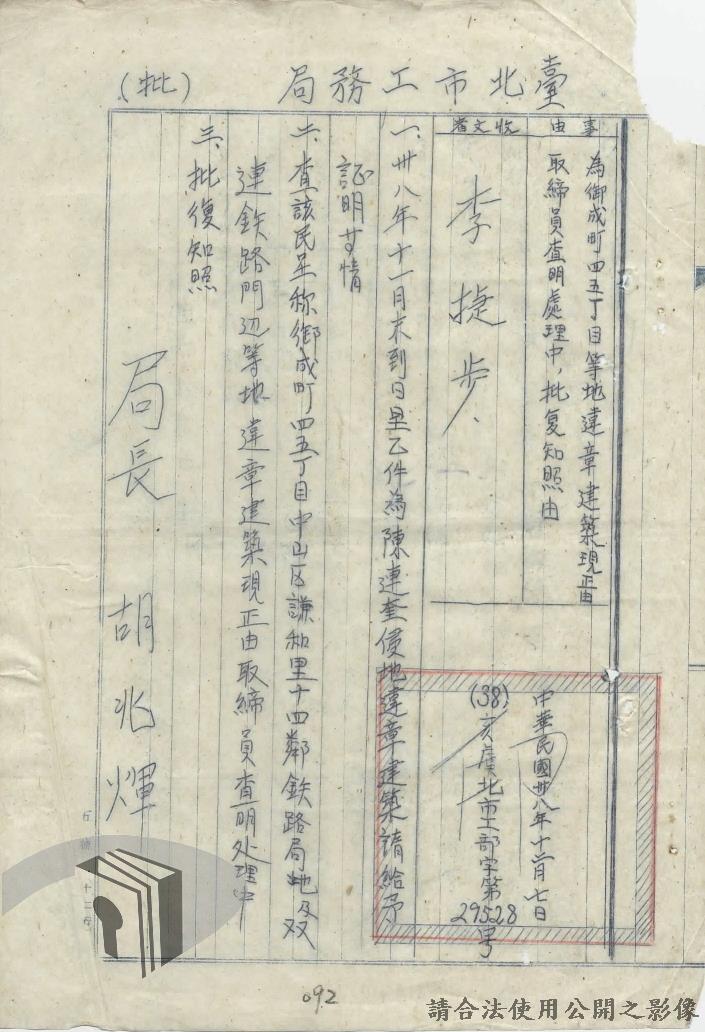 臺北市工務局
（批）
事由
為御成町四五丁目等地違章建築現正由
取締員查明處理中，批复知照由
收文者
李捷步、
中華民國卅八年十二月七日
(38)亥虞北市工部字第29528号
一、卅八年十一月末到日呈乙件為陳連奎侵地違章建築請給予
証明甘情
二、查該民呈称御成町四五丁目中山区謙和里十四鄰鉄路局地及双
連鉄路門辺等地違章建築現正由取締員查明处理中
三、批復知照
局長 胡兆煇
092
請合法使用公開之影像